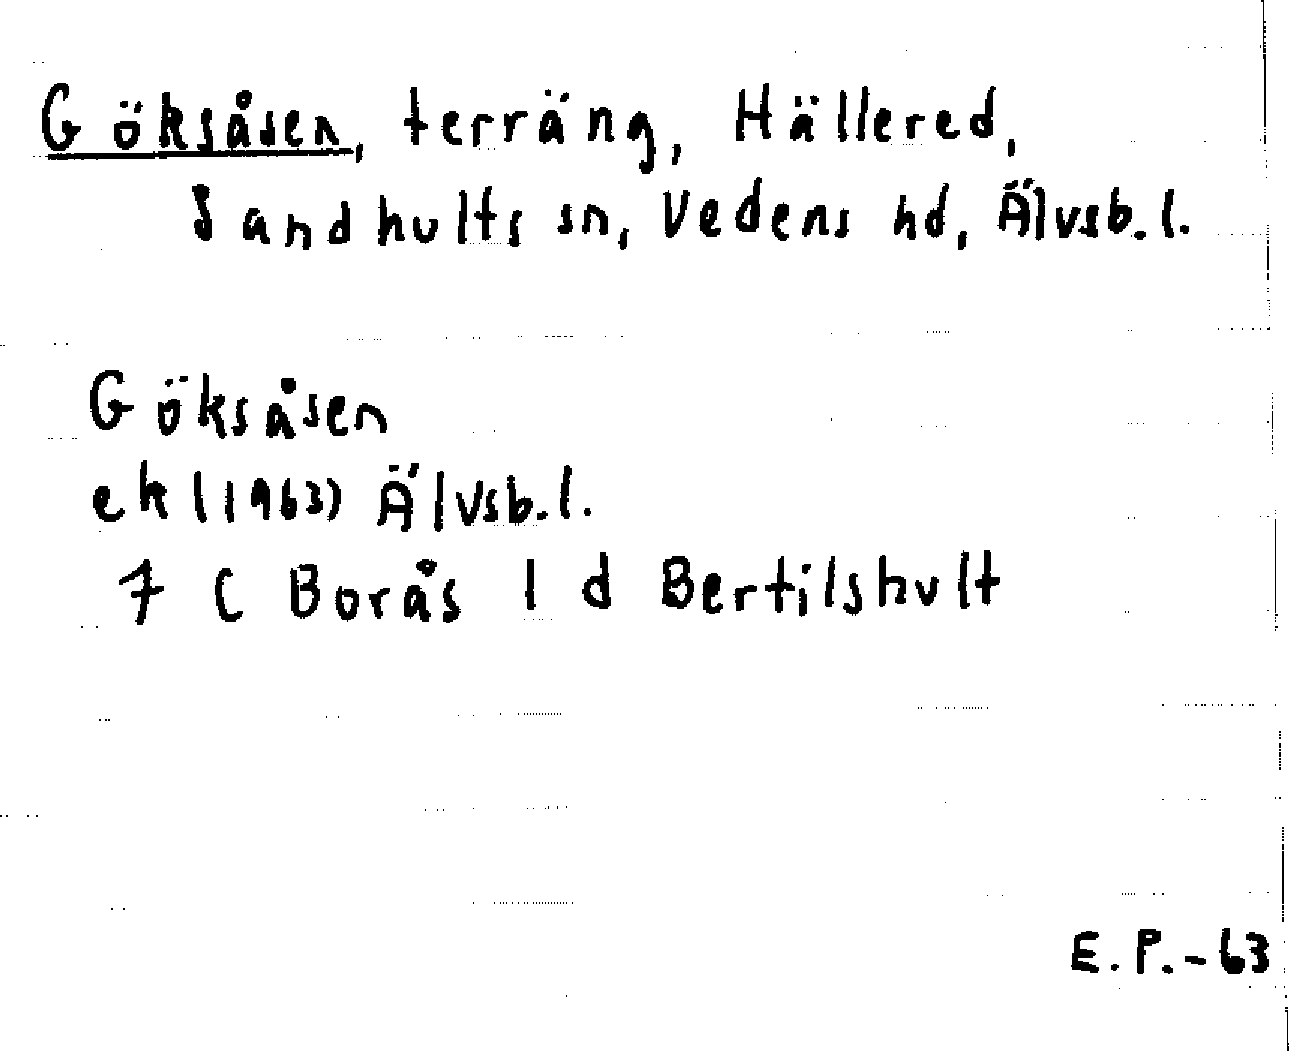 Göksåsen, terräng, Hällered,
Sandhults sn, Vedens hd, Älvsb. l.
Göksåsen
ek (1963) Älvsb. l.
7 C Borås 1 d Bertilshult
E. P. - 63